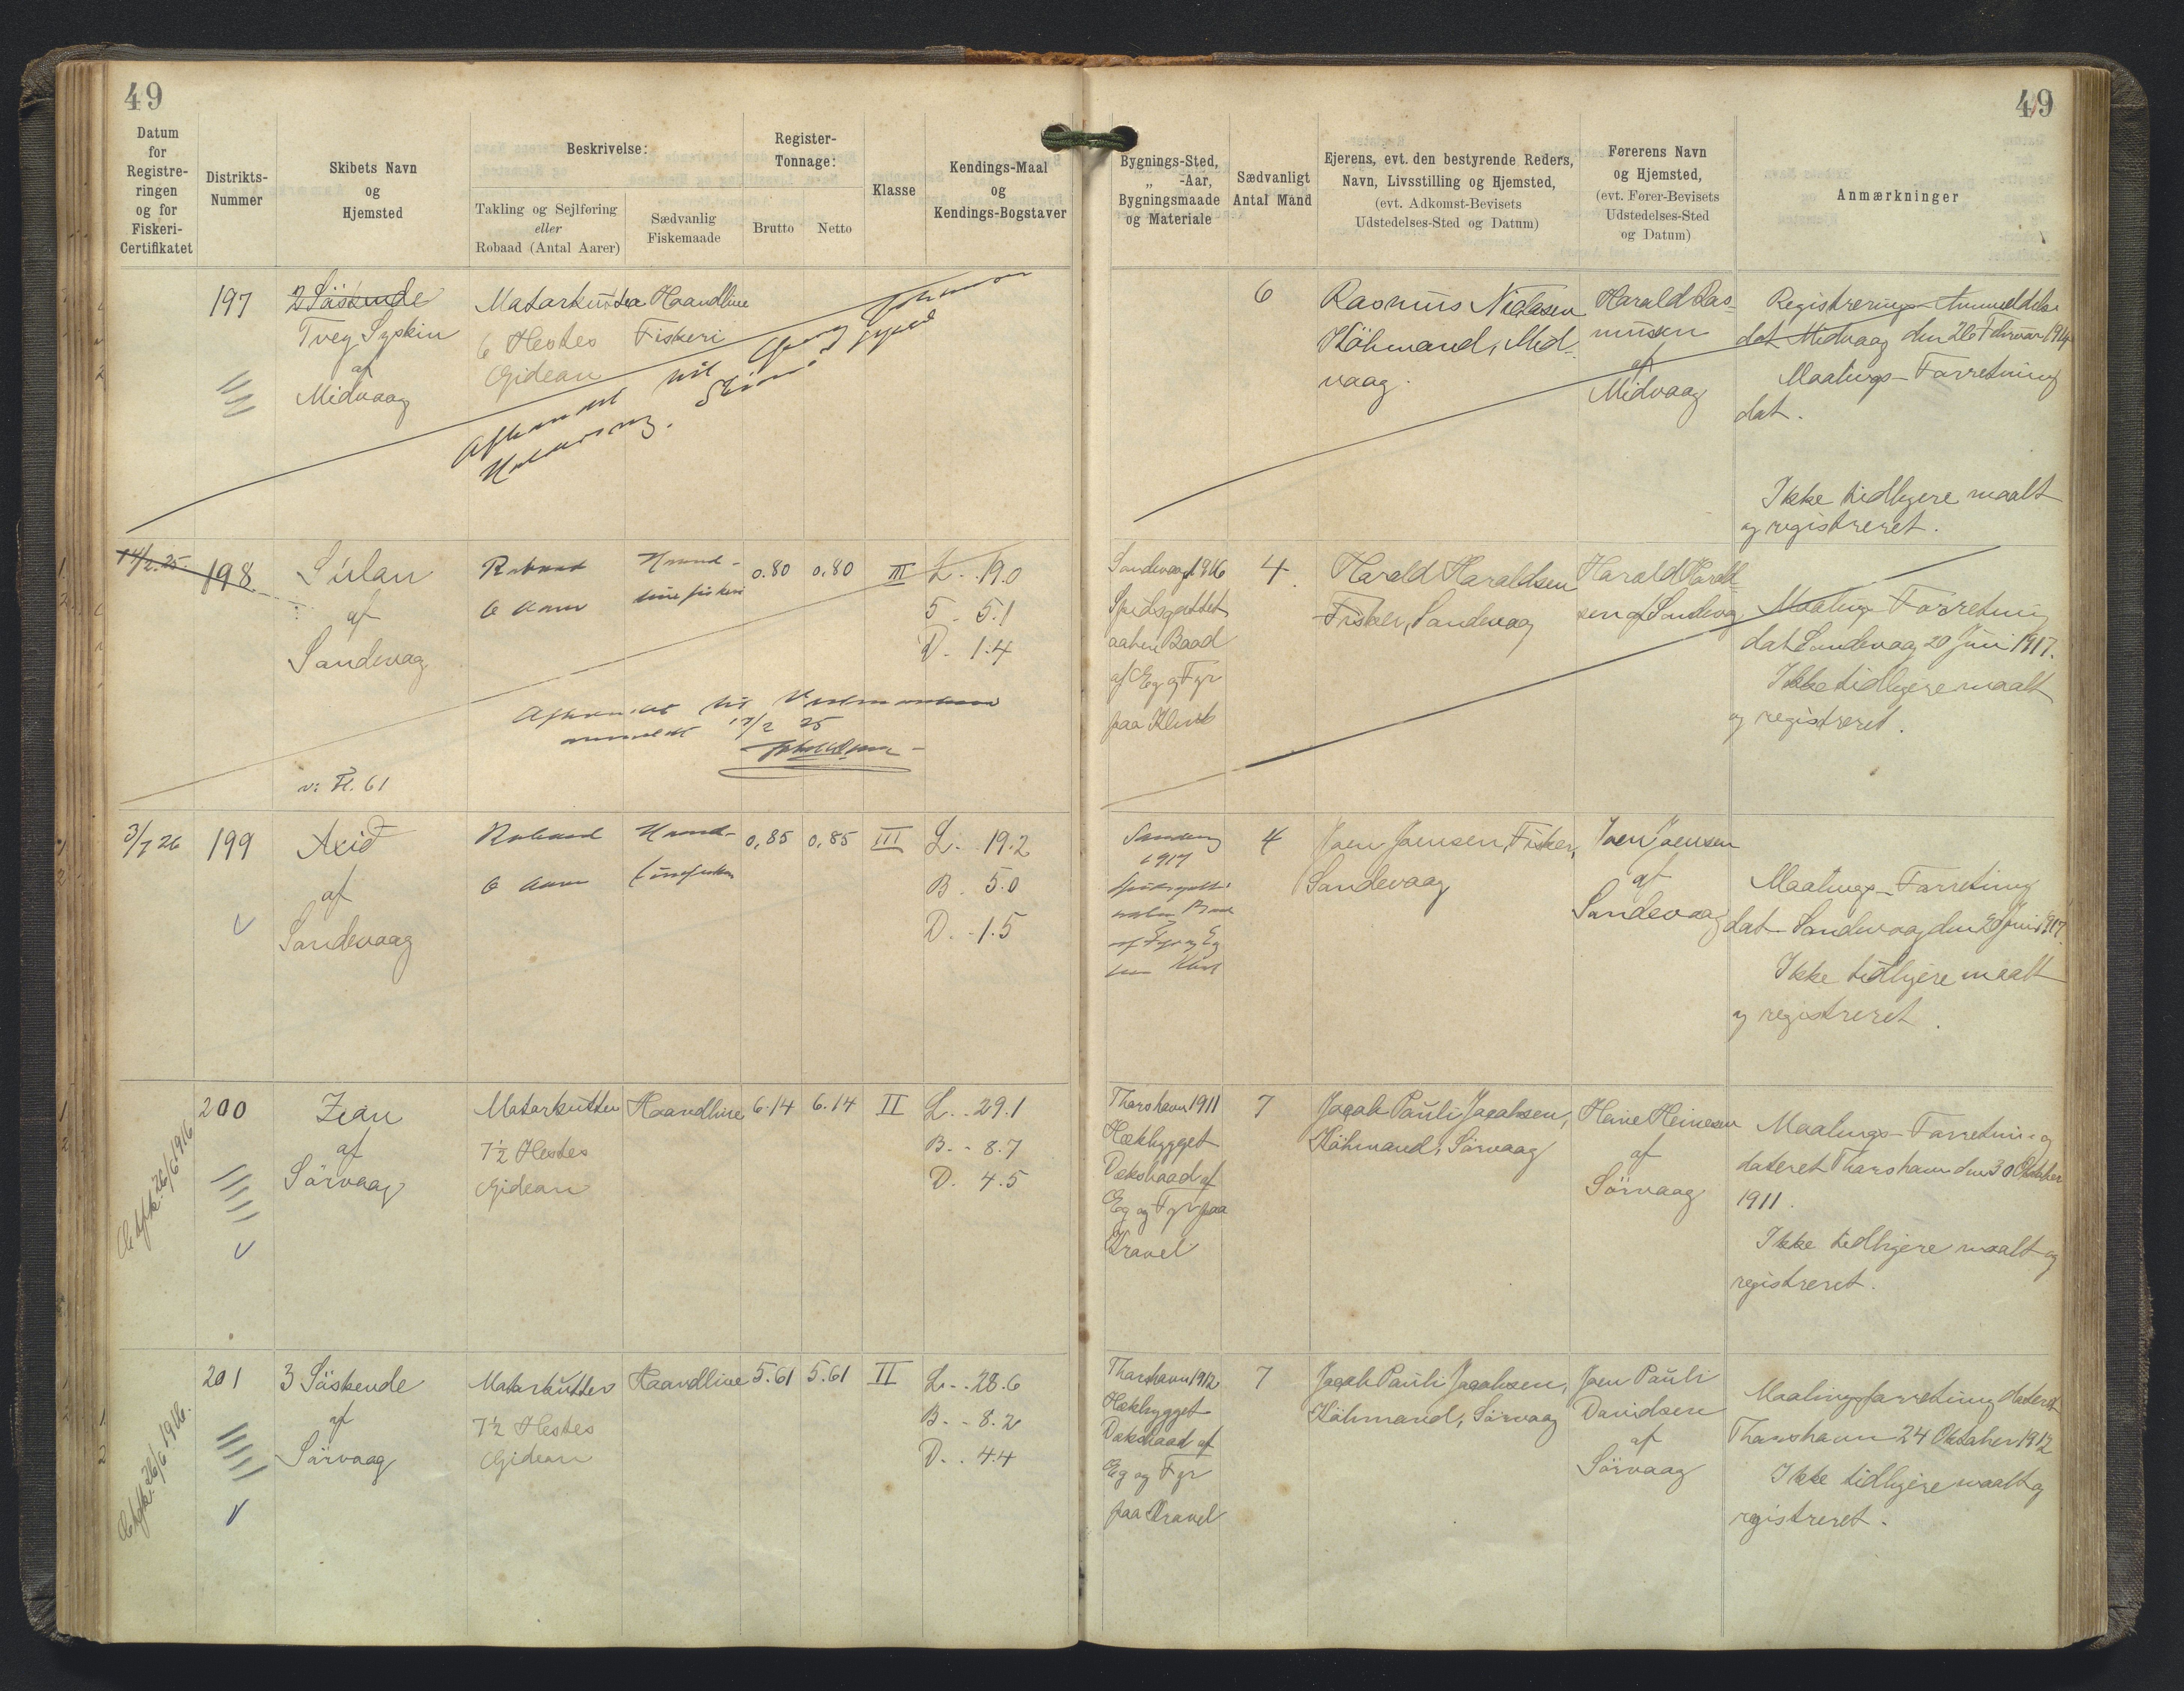 49
49
Datum
for
Registre-
ringen
og for
Fiskeri-
Certifikatet
Distrikts-
Nummer
Skibets Navn
og
Hjemsted
Beskrivelse:
Takling og Sejlføring
eller
Robaad (Antal Aarer)
Sædvanlig
Fiskemaade
Register-
Tonnage:
Brutto
Netto
Klasse
Kendings-Maal
og
Kendings-Bogstaver
Bygnings-Sted,
„ -Aar,
Bygningsmaade
og Materiale
Sædvanligt
Antal Mand
Ejerens, evt. den bestyrende Reders,
Navn, Livsstilling og Hjemsted,
(evt. Adkomst-Bevisets
Udstedelses-Sted og Datum)
Førerens Navn
og Hjemsted,
(evt. Fører-Bevisets
Udstedelses-Sted
og Datum)
Anmærkninger
197
2 Söskende
Tvey Syskin
af
Midvaag
Motorkutter
6 Hestes
Gideon
Haandline
Fiskeri
Afhændet til
6
Rasmus Nielasen
Köbmand, Mid-
vaag.
Harald Ras-
mussen
af
Midvaag
Registrerings Anmeldelse
dat Midvaag den 26 Februar 1914
Maalings-Forretning
dat.
Ikke tidligere maalt
og registreret.
14/2.25.
198
Súlan
af
Sandevag
v: Fl. 61
Robaad
6 Aarer
Haand-
linefiskeri
0.80
0.80
III
L. 19.0
5. 5.1
D. 1.4
Afhændet til
anmeldt 17/2 25
Sandevaag 1916
Spidsgattet
aaben Baad
af Eg og Fyr
paa Klink
4
Harald Haraldsen
Fisker, Sandevaag
Harald Harald-
sen af Sandevag
Maalings Forretning
dat Sandevaag 20 Juni 1917.
Ikke tidligere maalt
og registreret.
3/7 26
199
Axid
af
Sandevaag
Robaad
6 Aarer
Haand-
linefiskeri
0,85
0,85
III
L. 19.2
B. 5.0
D. 1.5
Sandevag
1917
Spidsgatt.
aaben Baad
af Fyr og Eg
paa Klink
4
Joen Joensen, Fisker,
Sandevaag
Joen Joensen
af
Sandevaag
Maalings-Forretning
dat Sandevaag den 20 Juni 1917.
Ikke tidligere maalt
og registreret.
26/6 1916
200
Zion
af
Sörvaag
Motorkutter
7½ Hestes
Gideon
Haandline
6.14
6.14
II
L. 29.1
B. 8.7
D. 4.5
Thorshavn 1911
Hækbygget
Dæksbaad af
Eg og Fyr paa
Kravel
7
Jacob Pauli Jacobsen,
Köbmand, Sörvaag
Heine Heinesen
af
Sörvaag
Maalings-Forretning
dateret Thorshavn den 30 Oktober
1911.
Ikke tidligere maalt og
registreret.
26/6 1916.
201
3 Söskende
af
Sörvaag
Motorkutter
7½ Hestes
Gideon
Haandline
5.61
5.61
II
L. 28.6
B. 8.2
D. 4.4
Thorshavn 1912
Hækbygget
Dæksbaad af
Eg og Fyr
paa Kravel
7
Jacob Pauli Jacobsen,
Köbmand, Sörvaag
Joen Pauli
Davidsen
af
Sörvaag
Maalingsforretning dateret
Thorshavn 24 Oktober 1912
Ikke tidligere maalt og
registreret.